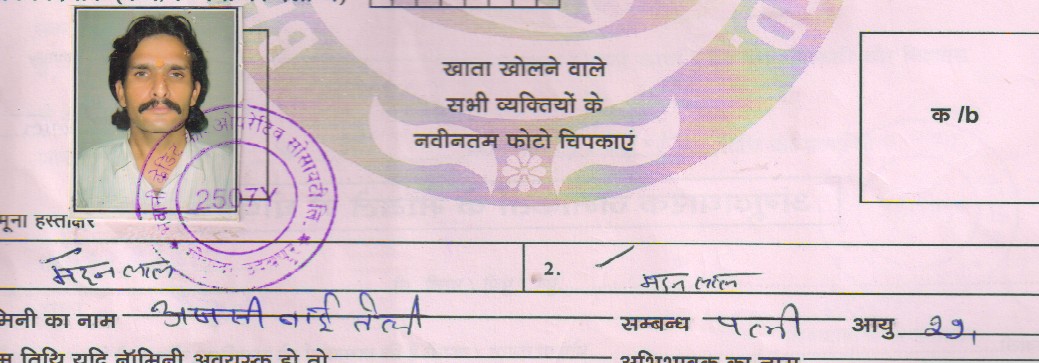 खाता खोलने वाले
सभी व्यक्तियों के
नवीनतम फोटो चिपकाएं
क /b
ओपरेटिव सोसायटी लि.
2507Y
मूना हस्ताक्षर
मदन लाल
2. मदन लाल
मिनी का नाम बाई तेली सम्बन्ध पत्नी आयु 29,
म तिथि यदि नॉमिनी अवयस्क हो तो
अभिभावक का नाम